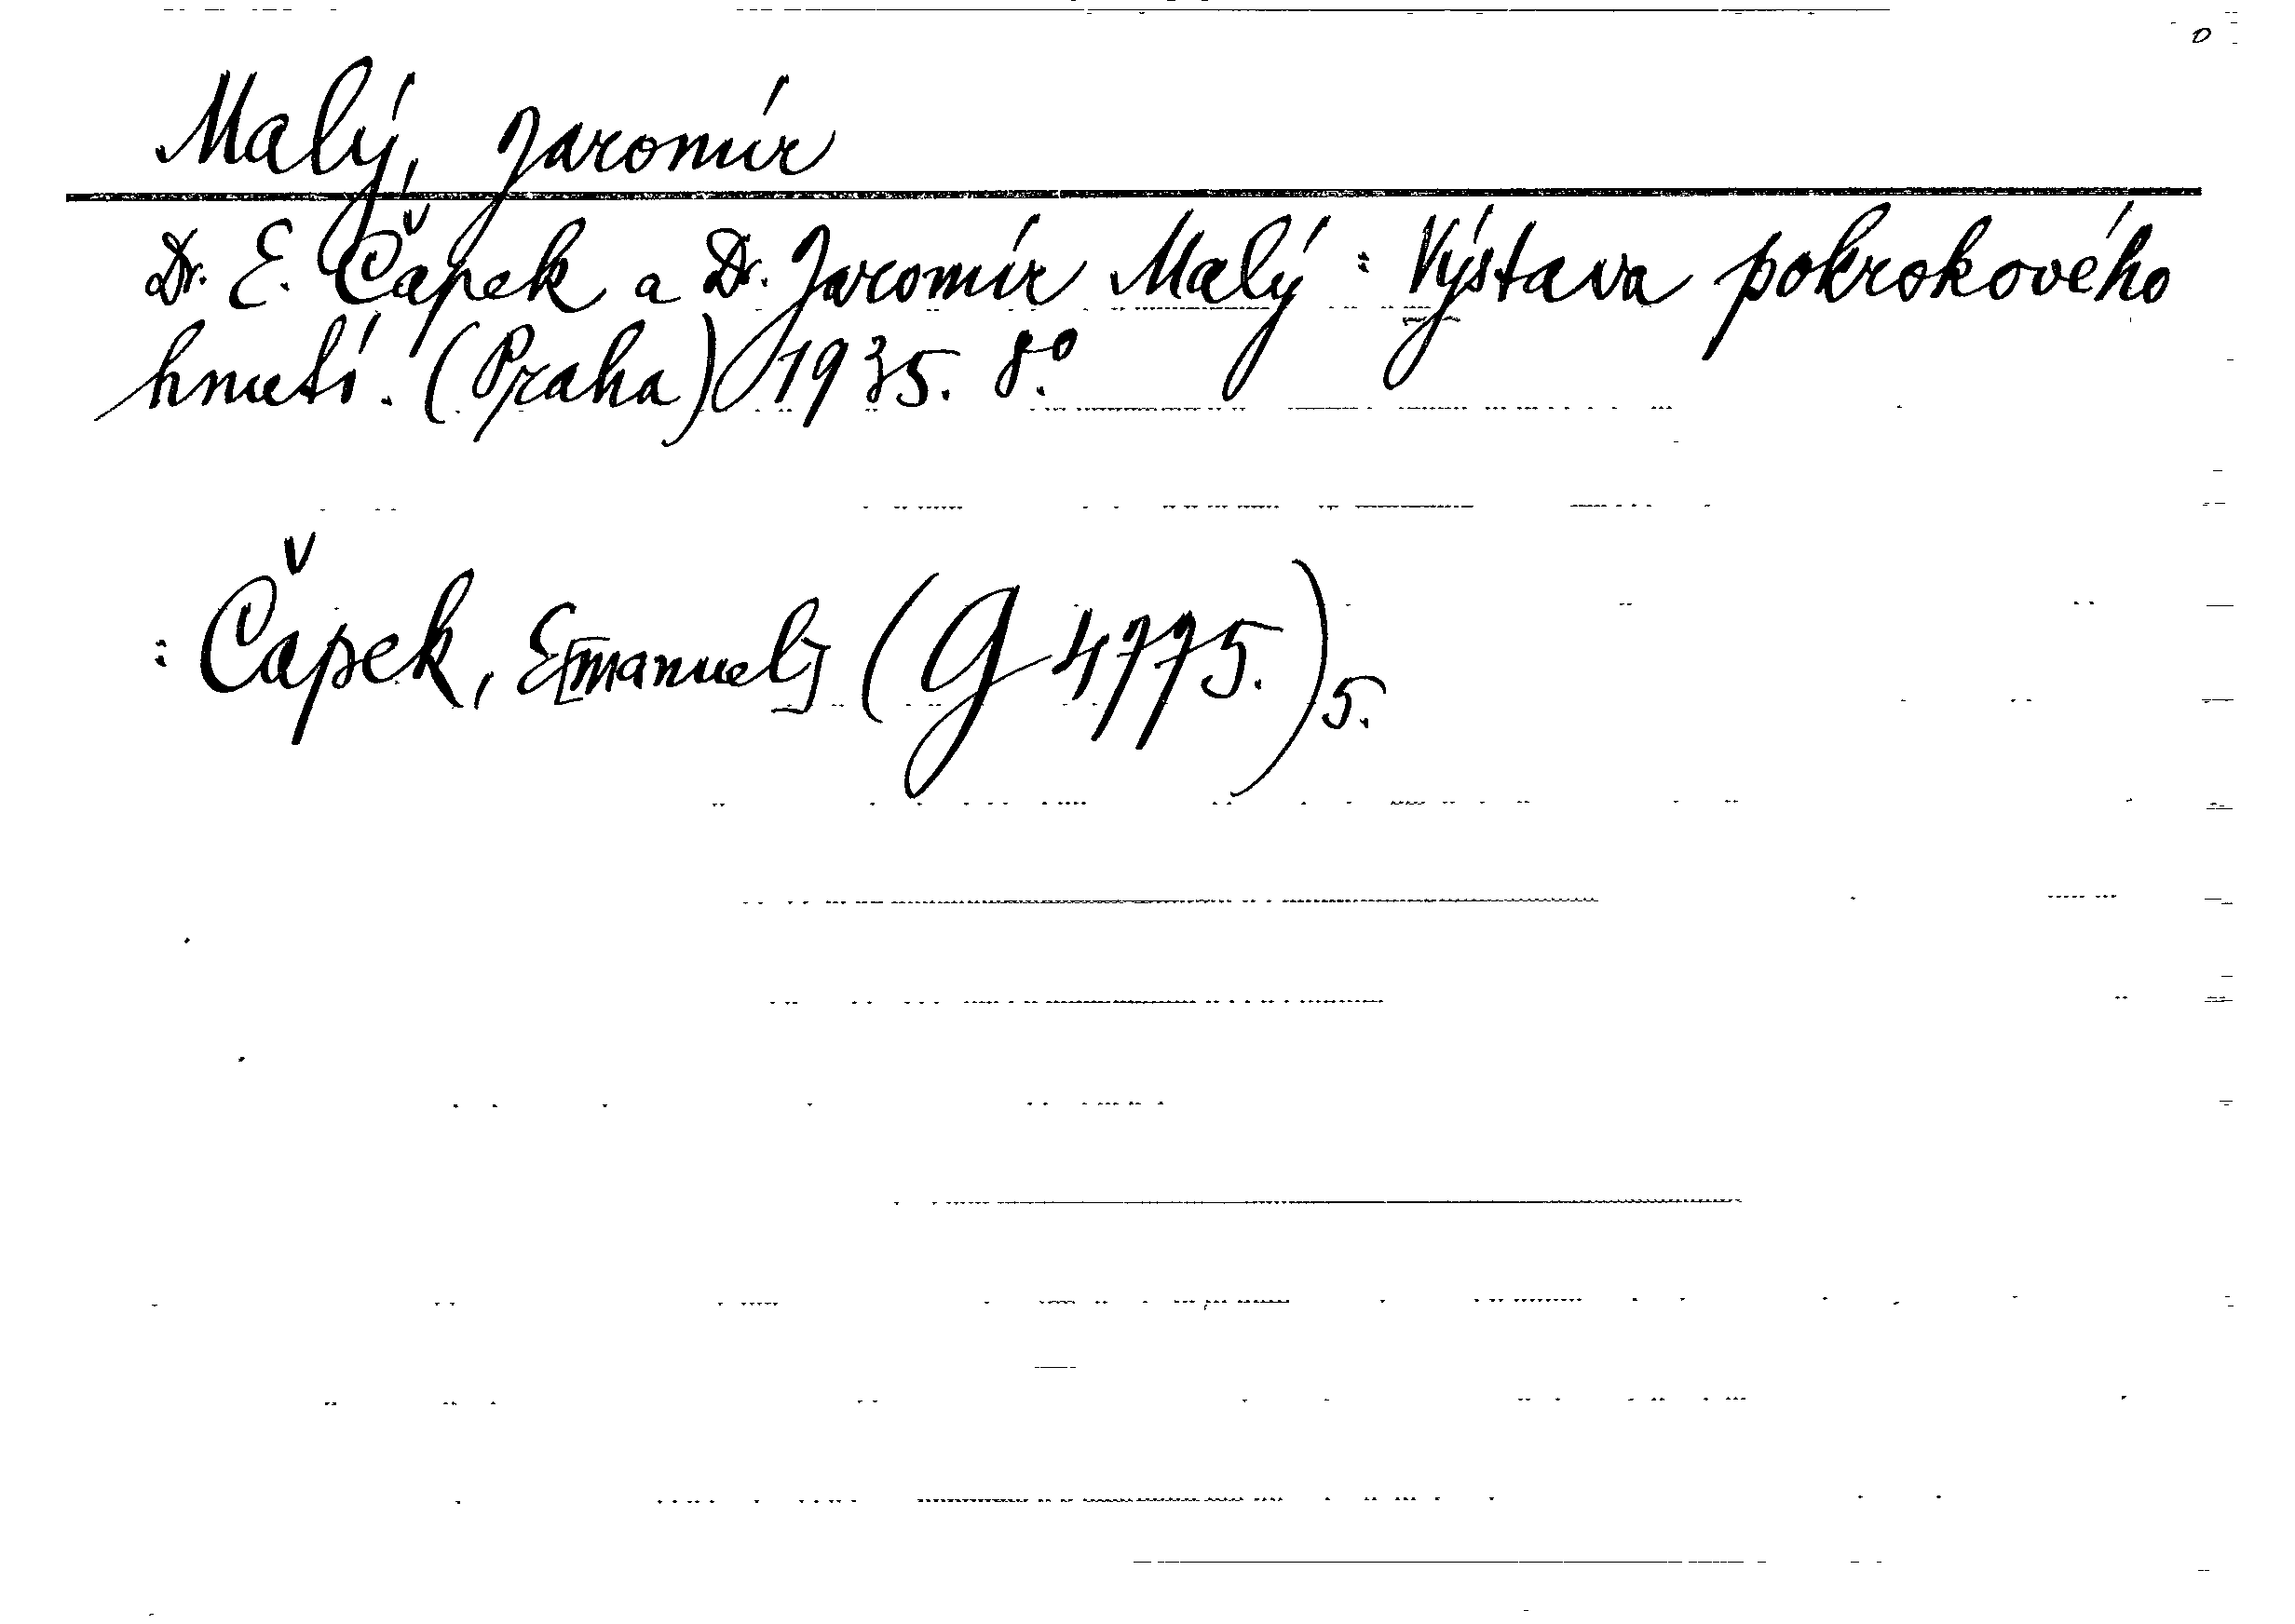 Malý, Jaromír
Dr. E. Čapek a Dr. Jaromír Malý : Výstava pokrokového
hnutí. (Praha) 1935. 8º.
: Čapek, E[manuel] (G 4775.)5.